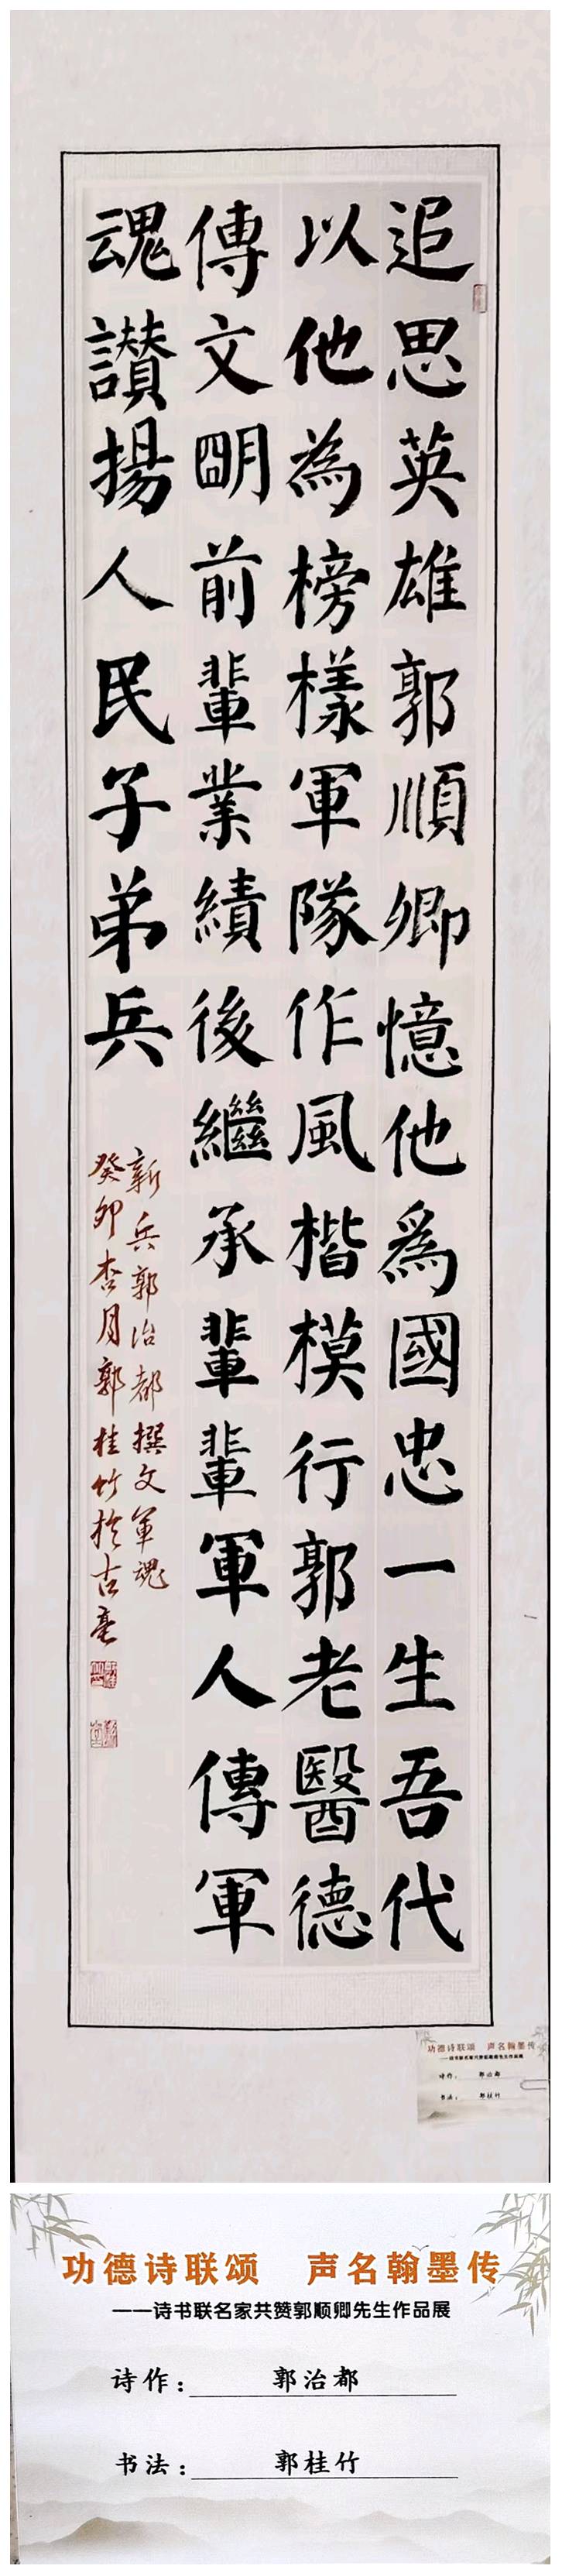 追思英雄郭順卿憶他爲國忠一生吾代
以他為榜樣軍隊作風楷模行郭老醫德
傳文明前輩業績後繼承輩輩軍人傳軍
魂讃揚人民子弟兵
新兵郭治都撰文軍魂
癸卯杏月郭桂竹於古亳
功德诗联颂 声名翰墨传
——诗书联名家共赞郭顺卿先生作品展
诗作：郭治都
书法：郭桂竹
功德诗联颂 声名翰墨传
——诗书联名家共赞郭顺卿先生作品展
诗作：郭治都
书法：郭桂竹